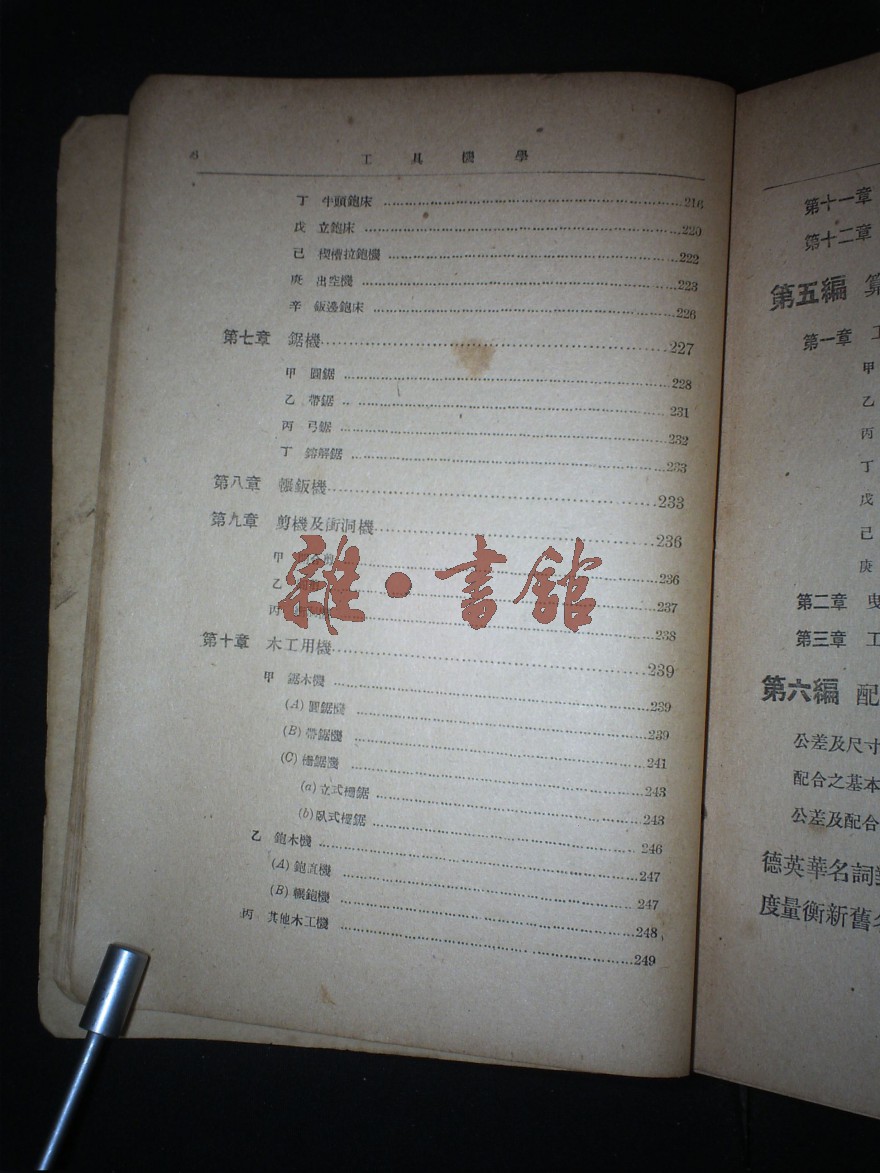 6 工具機學
丁 牛頭鉋床 216
戊 立鉋床 220
己 楔槽拉鉋機 222
庚 出空機 223
辛 鈑邊鉋床 226
第七章 鋸機 227
甲 圓鋸 228
乙 帶鋸 231
丙 弓鋸 232
丁 鎔解鋸 233
第八章 輾鈑機 233
第九章 剪機及衝洞機 236
甲 236
乙 237
丙 238
雜·書館
第十章 木工用機 239
甲 鋸木機 239
(A) 圓鋸機 239
(B) 帶鋸機 241
(C) 柵鋸機 243
(a) 立式柵鋸 243
(b) 臥式柵鋸 246
乙 鉋木機 247
(A) 鉋直機 247
(B) 輾鉋機 248
丙 其他木工機 249
第十一章
第十二章
第五編 算
第一章 工
甲
乙
丙
丁
戊
己
庚
第二章 曳
第三章 工
第六編 配
公差及尺寸
配合之基本
公差及配合
德英華名詞
度量衡新舊